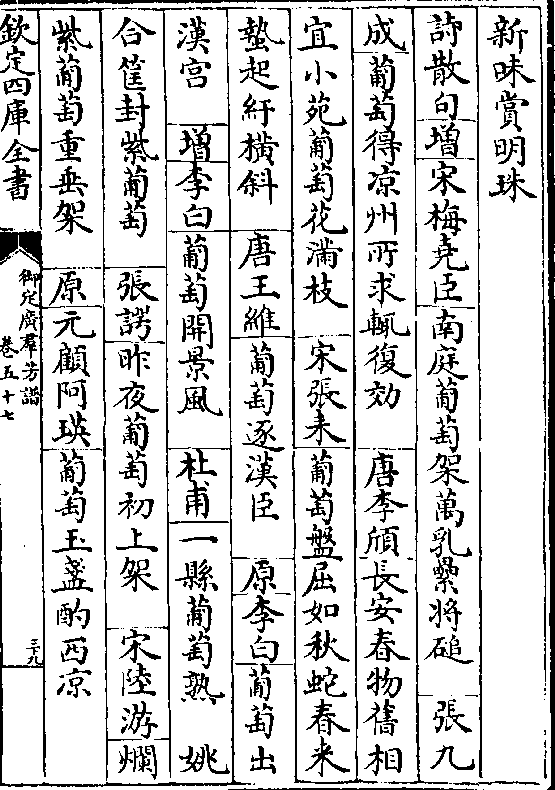 新味賞明珠
詩散句增宋梅堯臣南庭葡萄架萬乳纍将磓　張九
成葡萄得凉州所求輒復効　唐李頎長安春物舊相
宜小苑葡萄花滿枝　宋張耒葡萄盤屈如秋蛇春来
蟄起紆橫斜　唐王維葡萄逐漢臣　原李白葡萄出
漢宫　增李白葡萄開景風　杜甫一縣葡萄熟　姚
合筐封紫葡萄　張諤昨夜葡萄初上架　宋陸游爛
紫葡萄重垂架　原元顧阿瑛葡萄玉盞酌西凉
欽定四庫全書
御定廣羣芳譜
卷五十七
三十九